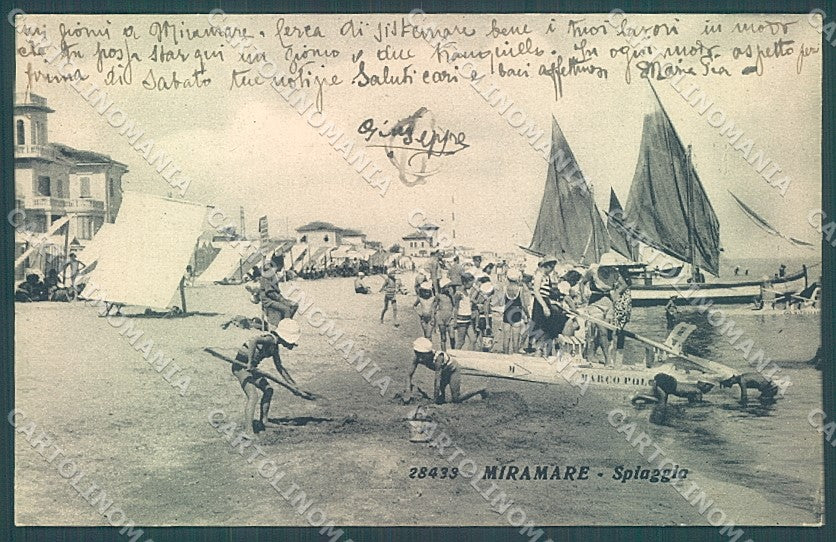 giorni a Miramare. Cerca di sistemare bene i tuoi lavori in modo
che tu possa star qui un giorno o due tranquillo. In ogni modo aspetto per
prima di Sabato tue notizie. Saluti cari e baci affettuosi Maria Pia
Giuseppe
M
MARCO POLO
28433 MIRAMARE - Spiaggia
CARTOLINOMANIA